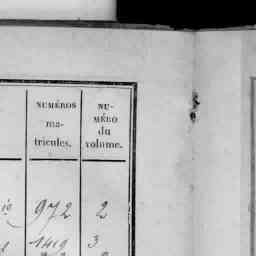 NUMÉROS
ma-
tricules.
NU-
MÉRO
du
volume.
972 2
1419 3